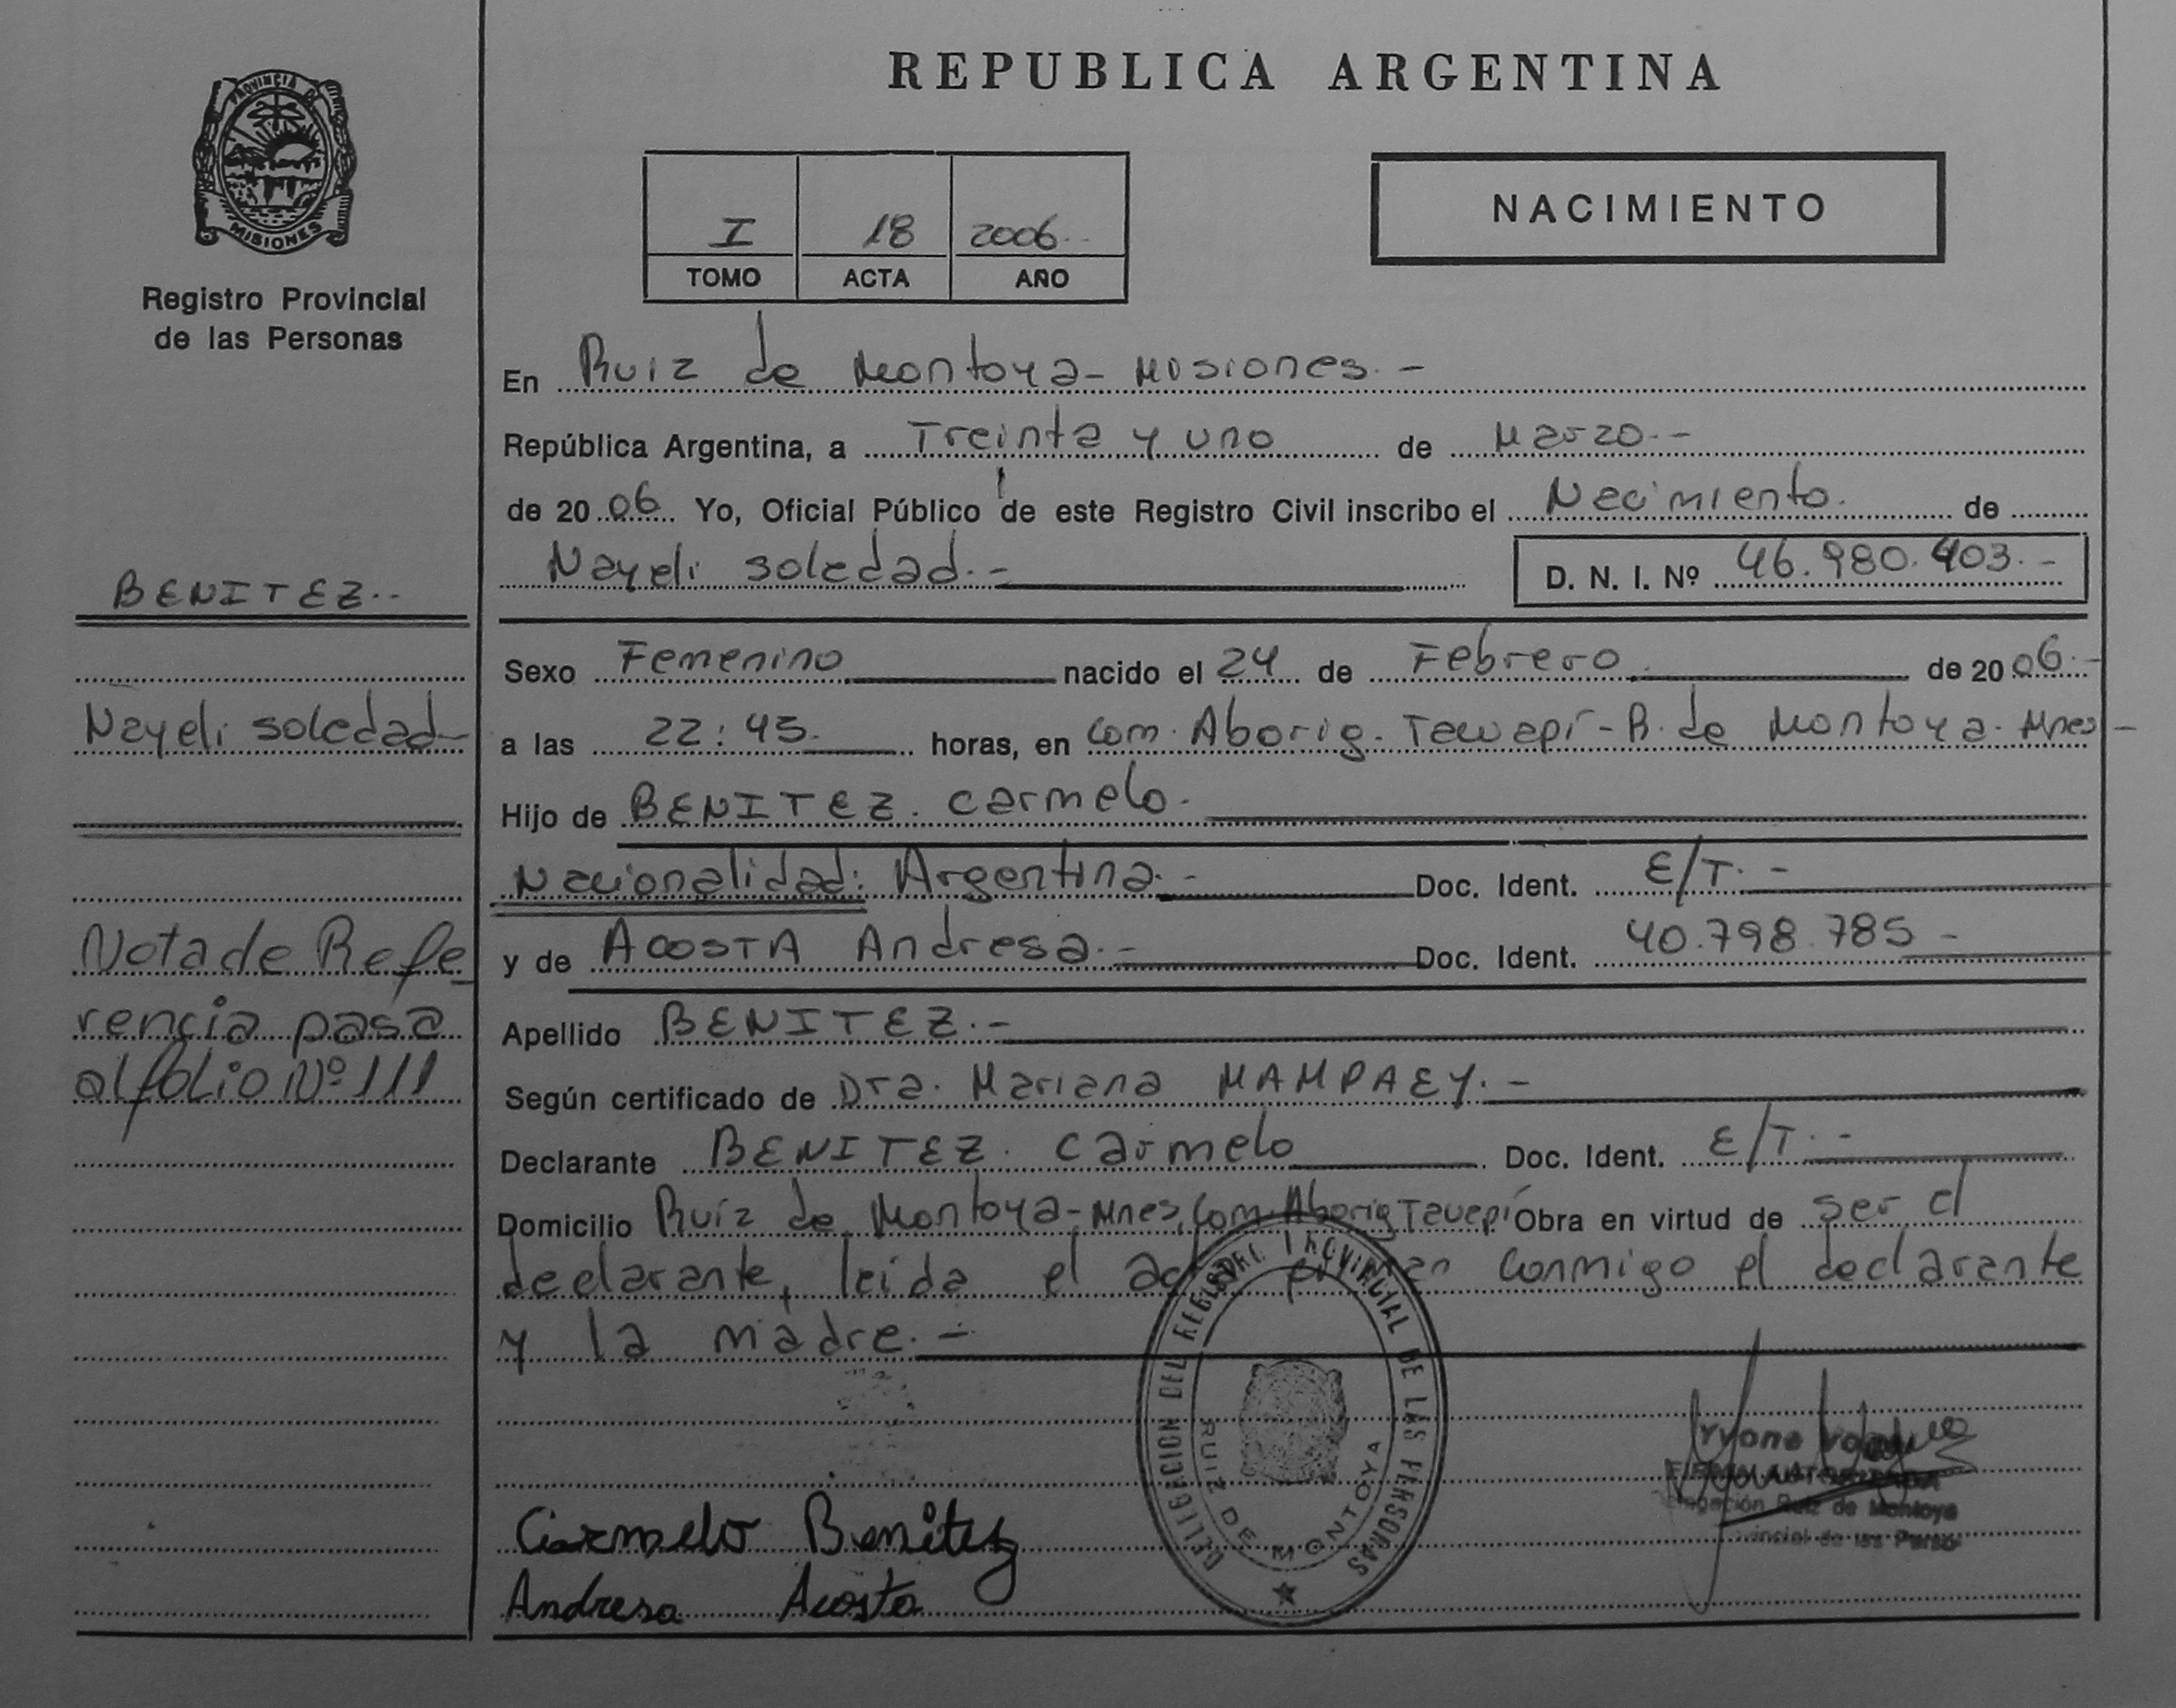 REPUBLICA ARGENTINA
PROVINCIA DE
MISIONES
Registro Provincial
de las Personas
I 18 2006
TOMO ACTA AÑO
NACIMIENTO
En Ruiz de Montoya - Misiones.-
República Argentina, a Treinta y uno de Marzo.-
de 2006 Yo, Oficial Público de este Registro Civil inscribo el Nacimiento. de
Nayeli soledad.- D. N. I. Nº 46.980.403.-
BENITEZ.-
Nayeli soledad-
Nota de Refe
rencia pasa
al folio Nº 111
Sexo Femenino nacido el 24 de Febrero de 2006.-
a las 22:45. horas, en Com. Aborig. Tavapí - R. de Montoya. Mnes-
Hijo de BENITEZ. Carmelo.
Nacionalidad: Argentina.- Doc. Ident. E/T.-
y de ACOSTA Andresa.- Doc. Ident. 40.798.785-
Apellido BENITEZ.-
Según certificado de Dra. Mariana MAMPAEY.-
Declarante BENITEZ. Carmelo Doc. Ident. E/T.-
Domicilio Ruíz de Montoya-Mnes, Com. Aborig Tavapí Obra en virtud de ser el
declarante, leída el acta firman conmigo el declarante
y la madre.-
DELEGACION DEL REGISTRO PROVINCIAL DE LAS PERSONAS
RUIZ DE MONTOYA
FIRMA AUTORIZADA
Delegación Ruiz de Montoya
Carmelo Benitez
Andresa Acosta